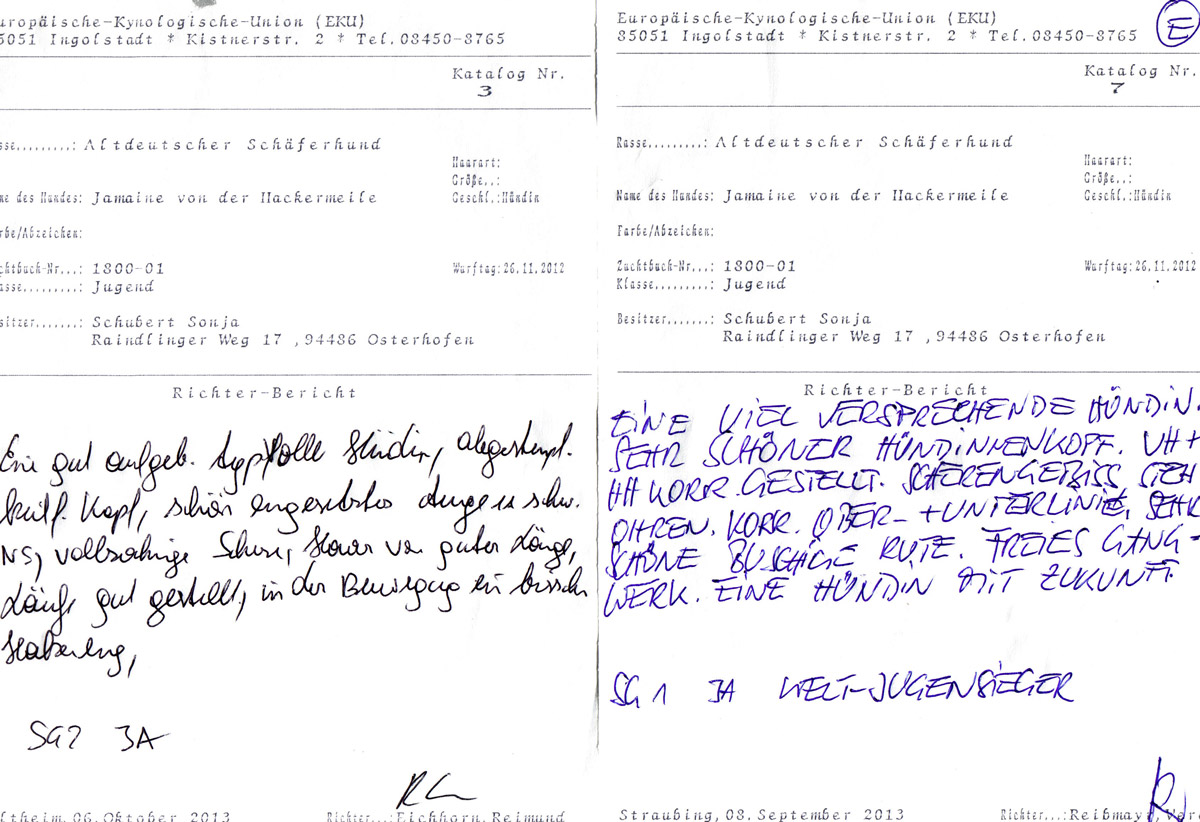 uropäische-Kynologische-Union (EKU)
5051 Ingolstadt * Kistnerstr. 2 * Tel.08450-8765
Katalog Nr.
3
sse.........: Altdeutscher Schäferhund
Haarart:
Größe..:
me des Hundes: Jamaine von der Hackermeile
Geschl.:Hündin
rbe/Abzeichen:
chtbuch-Nr...: 1800-01
Wurftag:26.11.2012
asse.........: Jugend
sitzer.......: Schubert Sonja
Raindlinger Weg 17 ,94486 Osterhofen
Richter-Bericht
Eine gut aufgeb. typvolle Hündin,
Kopf, schön
NS, vollzahnige Schere, Haar von guter Länge,
Läufe gut gestellt, in der Bewegung ein bisschen
SG2 3A
ltheim,06.Oktober 2013
Richter...:Eichhorn,Reimund
Europäische-Kynologische-Union (EKU)
85051 Ingolstadt * Kistnerstr. 2 * Tel.08450-8765
E
Katalog Nr.
7
Rasse.........: Altdeutscher Schäferhund
Haarart:
Größe..:
Name des Hundes: Jamaine von der Hackermeile
Geschl.:Hündin
Farbe/Abzeichen:
Zuchtbuch-Nr...: 1800-01
Wurftag:26.11.2012
Klasse.........: Jugend
Besitzer.......: Schubert Sonja
Raindlinger Weg 17 ,94486 Osterhofen
Richter-Bericht
EINE VIEL VERSPRECHENDE HÜNDIN.
SEHR SCHÖNER HÜNDINNENKOPF. VH +
HH KORR. GESTELLT. SCHERENGEBISS, STEH
OHREN. KORR. OBER- + UNTERLINIE, SEHR
SCHÖNE BUSCHIGE RUTE. FREIES GANG-
WERK. EINE HÜNDIN MIT ZUKUNFT.
SG 1 JA WELT-JUGENSIEGER
Straubing,08.September 2013
Richter...:Reißmay